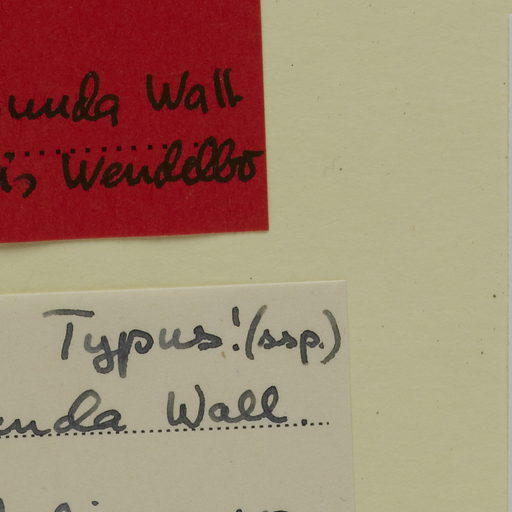 unda Wall
is Wendelbo
Typus! (ssp.)
unda Wall.